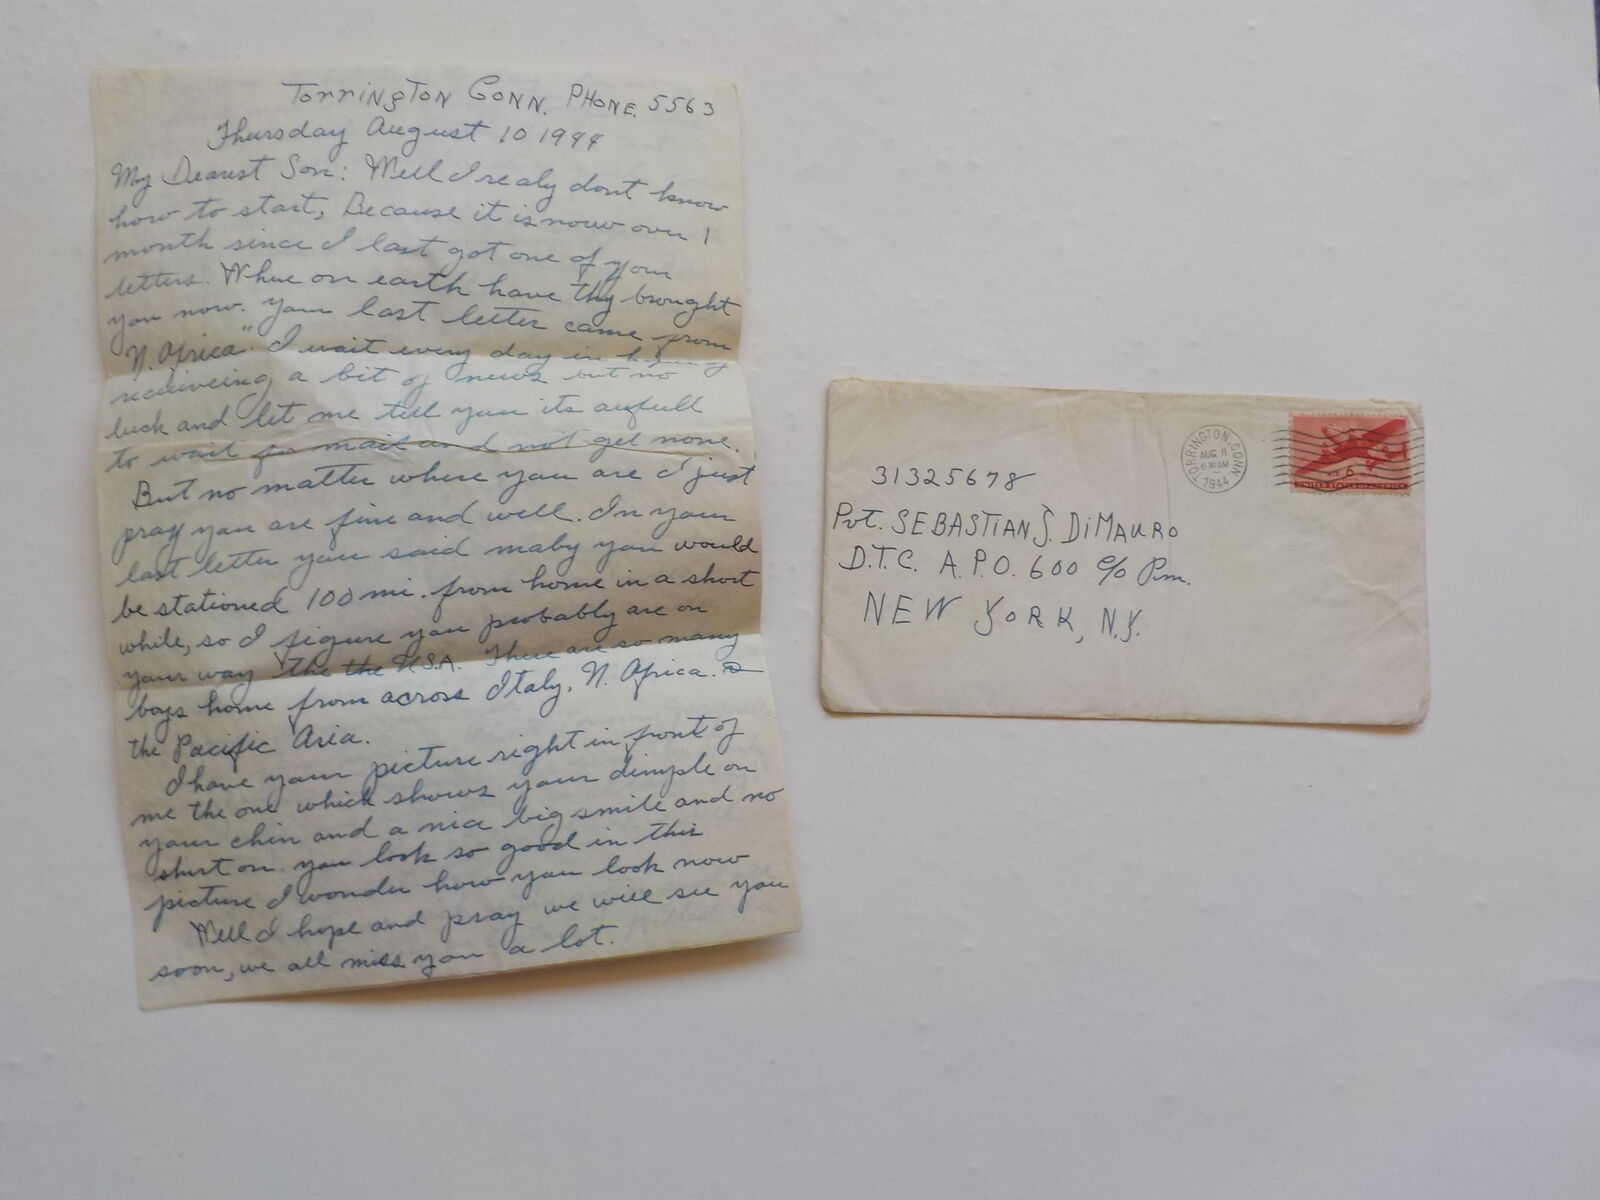 Torrington Conn. Phone. 5563
Thursday August 10 1944
My Dearest Son: Well I realy dont know
how to start, Because it is now over 1
month since I last got one of your
letters. Where on earth have thy brought
you now. your last letter came from
N. Africa" I wait every day in hopes of
receiveing a bit of news but no
luck and let me tell you its awfull
to wait for mail and not get none.
But no matter where you are I just
pray you are fine and well. In your
last letter you said maby you would
be stationed 100 mi. from home in a short
while, so I figure you probably are on
your way the the U.S.A. There are so many
boys home from across Italy, N. Africa.
the Pacific Aria.
I have your picture right in front of
me the one which shows your dimple on
your chin and a nice big smile and no
shirt on. you look so good in this
picture I wonder how you look now
Well I hope and pray we will see you
soon, we all miss you a lot.
TORRINGTON, CONN.
AUG 11
6 AM
1944
AIR 6¢ MAIL
UNITED STATES OF AMERICA
31325678
Pvt. SEBASTIAN S. DiMAURO
D.T.C. A.P.O. 600 c/o P.m.
NEW YORK, N.Y.